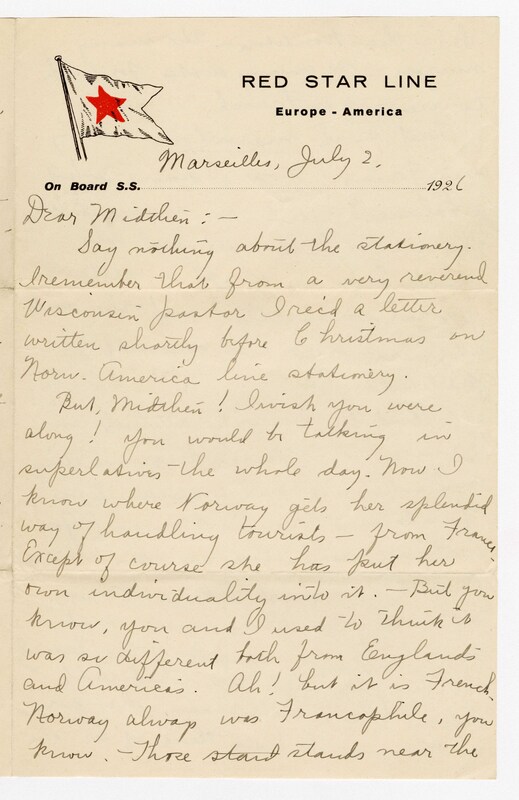 RED STAR LINE
Europe - America
Marseilles, July 2.
On Board S.S. 1926
Dear Midthen : —
Say nothing about the stationery.
I remember that from a very reverend
Wisconsin pastor I rec'd a letter
written shortly before Christmas on
Norw. America line stationery.
But, Midthen! I wish you were
along! you would be talking in
superlatives the whole day. Now I
know where Norway gets her splendid
way of handling tourists — from France.
Except of course she has put her
own individuality into it. — But you
know, you and I used to think it
was so different both from Englands
and Americas. Ah! but it is French.
Norway always was Francophile, you
know. — Those stand stands near the